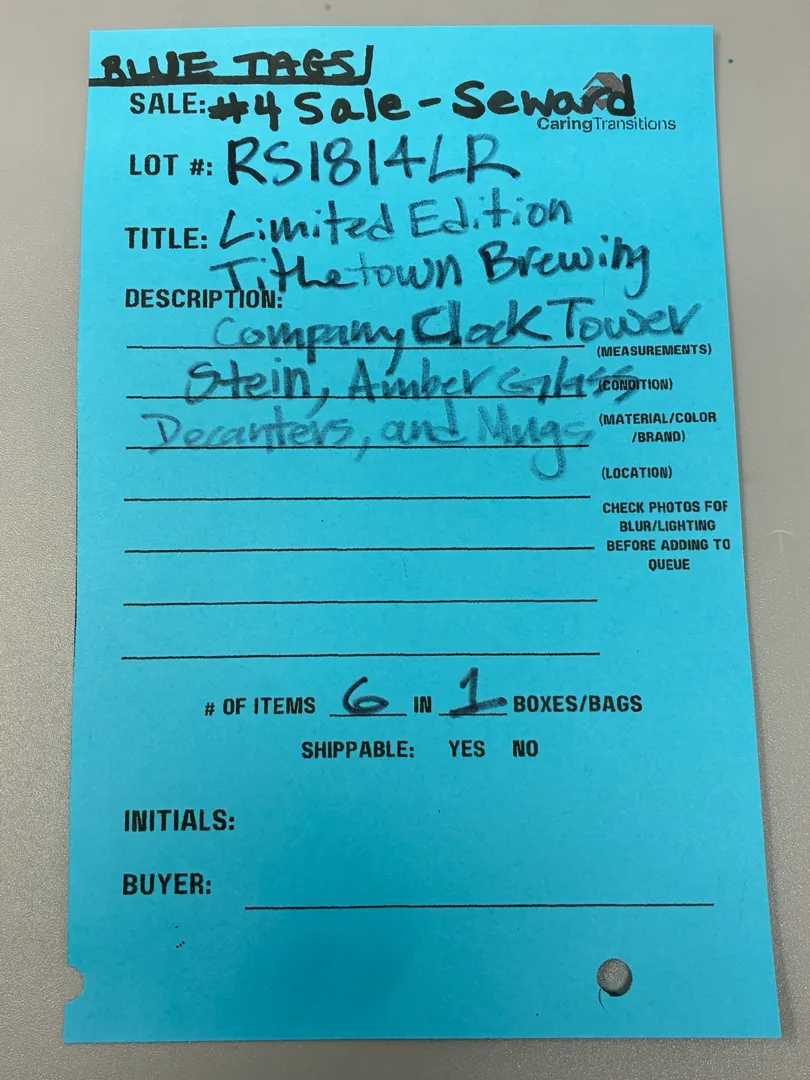 BLUE TAGS/
SALE: #4 Sale - Seward
CaringTransitions
LOT #: RS1814LR
TITLE: Limited Edition
Tithetown Brewing
DESCRIPTION:
Company Clock Tower
(MEASUREMENTS)
Stein, Amber Glass
(CONDITION)
Decanters, and Mugs
(MATERIAL/COLOR
/BRAND)
(LOCATION)
CHECK PHOTOS FOR
BLUR/LIGHTING
BEFORE ADDING TO
QUEUE
# OF ITEMS 6 IN 1 BOXES/BAGS
SHIPPABLE: YES NO
INITIALS:
BUYER: